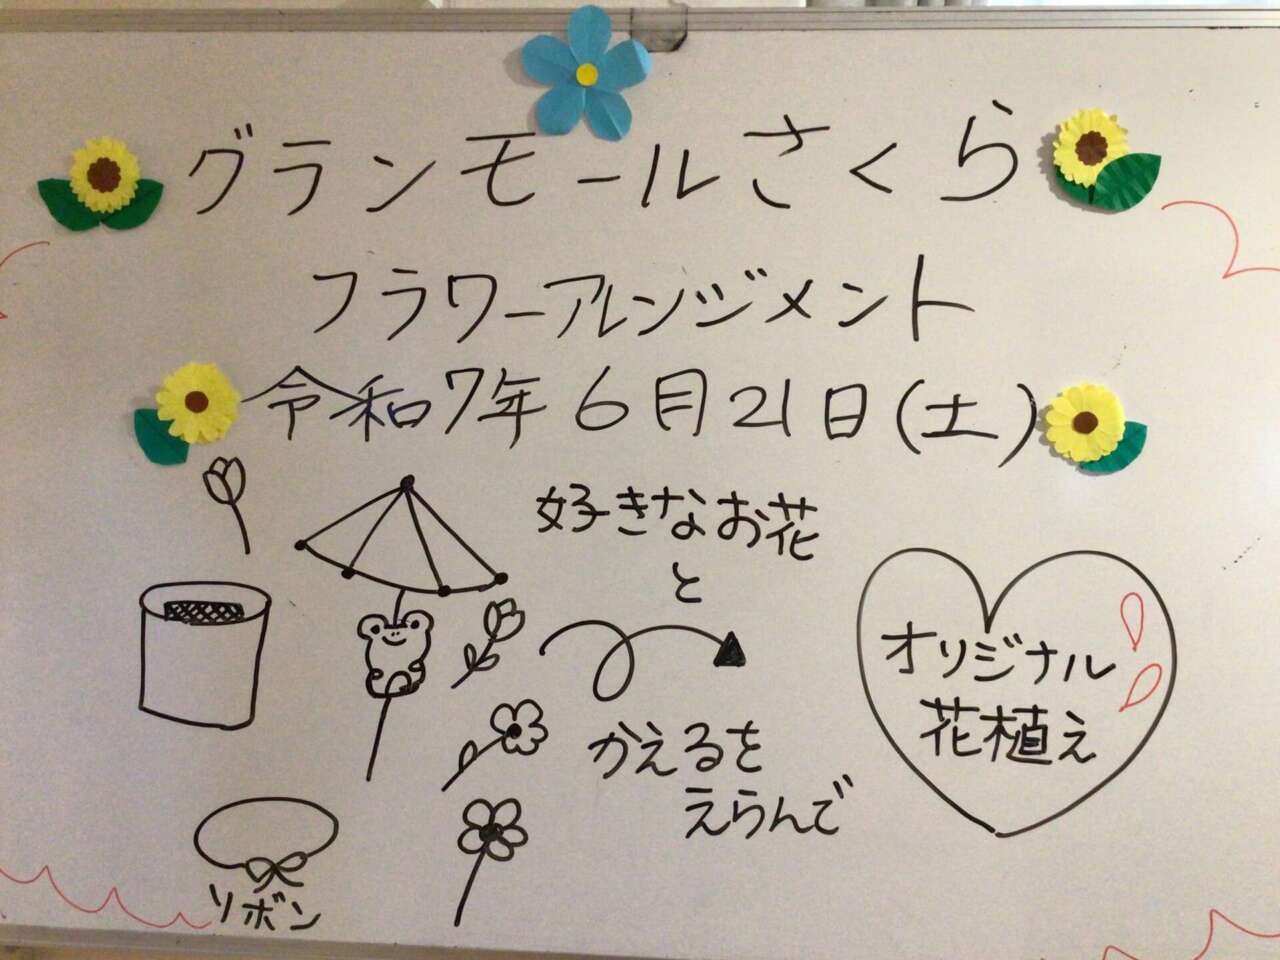 グランモールさくら
フラワーアレンジメント
令和7年6月21日(土)
好きなお花
と
かえるを
えらんで
オリジナル
花植え
リボン